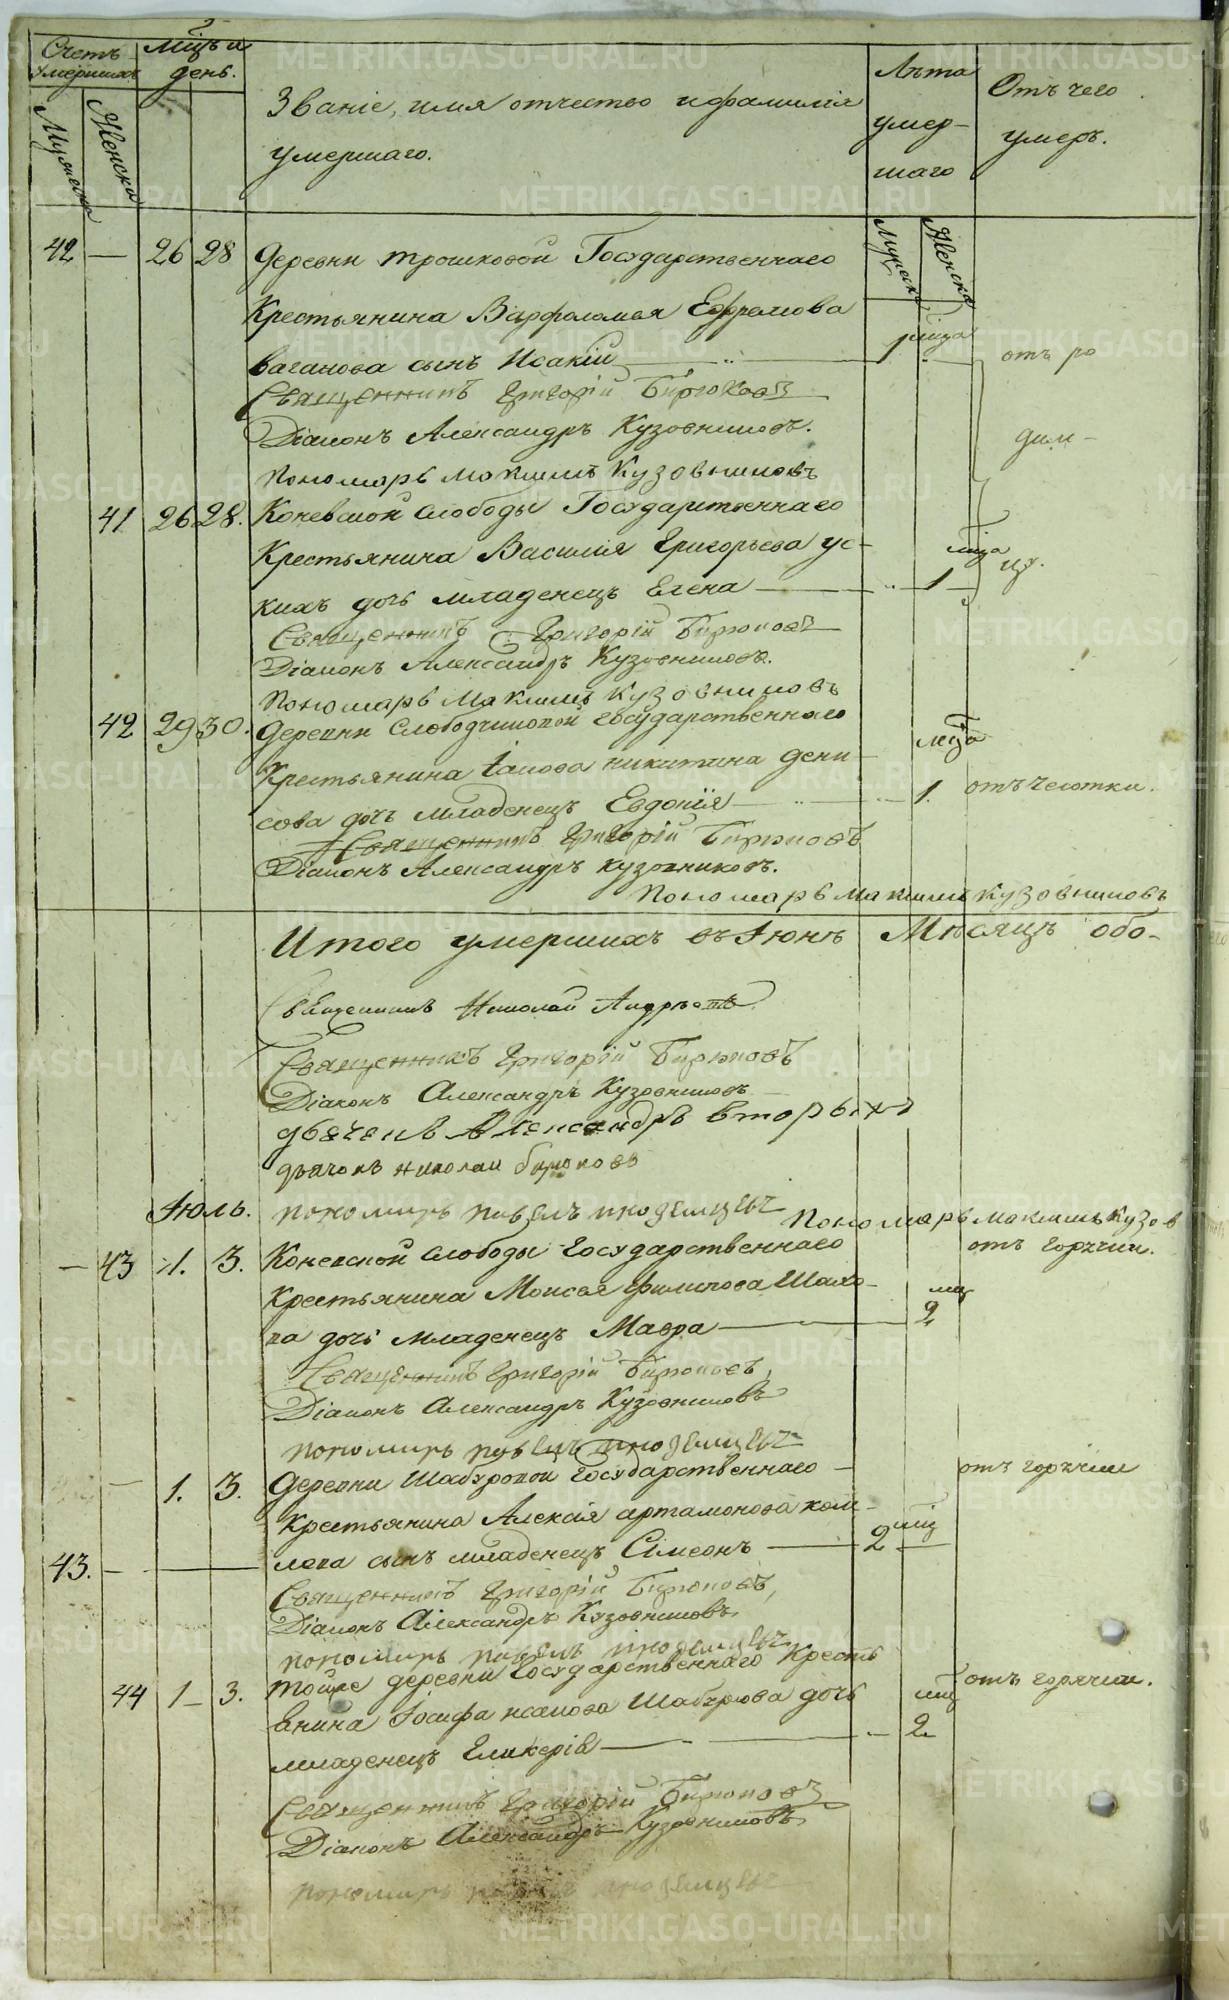 Счетъ умершихъ
Мужеска
Женска
Мцъ и день.
Званіе, имя отчество и фамилія
умершаго.
Лѣта
умер-
шаго
Мужеска
Женска
Отъ чего
умеръ.
42 — 26 28 Деревни Трошковой Государственнаго
Крестьянина Варфоломея Ефремова
Ваганова сынъ Исакій 1 мца отъ ро
Священникъ Григорій Бирюковъ
Діаконъ Александръ Кузовниковъ. дим-
Пономарь Максимъ Кузовниковъ
41 26 28. Коневской слободы Государственнаго
Крестьянина Василія Григорьева Ус- мца
кихъ дочь младенецъ Елена 1 ца.
Священникъ Григорій Бирюковъ
Діаконъ Александръ Кузовниковъ.
Пономарь Максимъ Кузовниковъ
42 29 30. Деревни Слободчиковой государственнаго мца
Крестьянина Іакова Никитина Дени-
сова дочь младенецъ Евдокія 1. отъ чесотки.
Священникъ Григорій Бирюковъ
Діаконъ Александръ Кузовниковъ.
Пономарь Максимъ Кузовниковъ
Итого умершихъ въ Іюнѣ Мѣсяцѣ обо-
Священникъ Николай Андрѣевъ
Священникъ Григорій Бирюковъ
Діаконъ Александръ Кузовниковъ
дьечекъ Александръ Вторыхъ
дьячокъ Николай Бирюковъ
Іюль. пономарь Павелъ Иноземцевъ Пономарь Максимъ Кузов
— 43 1. 3. Коневской слободы Государственнаго отъ горячки.
Крестьянина Моисея Филипова Шахо- мц
ва дочь младенецъ Мавра 2
Священникъ Григорій Бирюковъ,
Діаконъ Александръ Кузовниковъ
пономарь Павелъ Иноземцевъ
— 1. 3. Деревни Шабуровой Государственнаго отъ горячки
Крестьянина Алексія Артамонова
43. сынъ младенецъ Сімеонъ 2 мц
Священникъ Григорій Бирюковъ,
Діаконъ Александръ Кузовниковъ,
пономарь Павелъ Иноземцевъ
44 1 — 3. Тойже деревни Государственнаго Кресть отъ горячки.
янина Іосифа Исакова Шабурова дочь мц
младенецъ Гликерія 2.
Священникъ Григорій Бирюковъ
Діаконъ Александръ Кузовниковъ,
пономарь Павелъ Иноземцевъ
METRIKI.GASO-URAL.RU